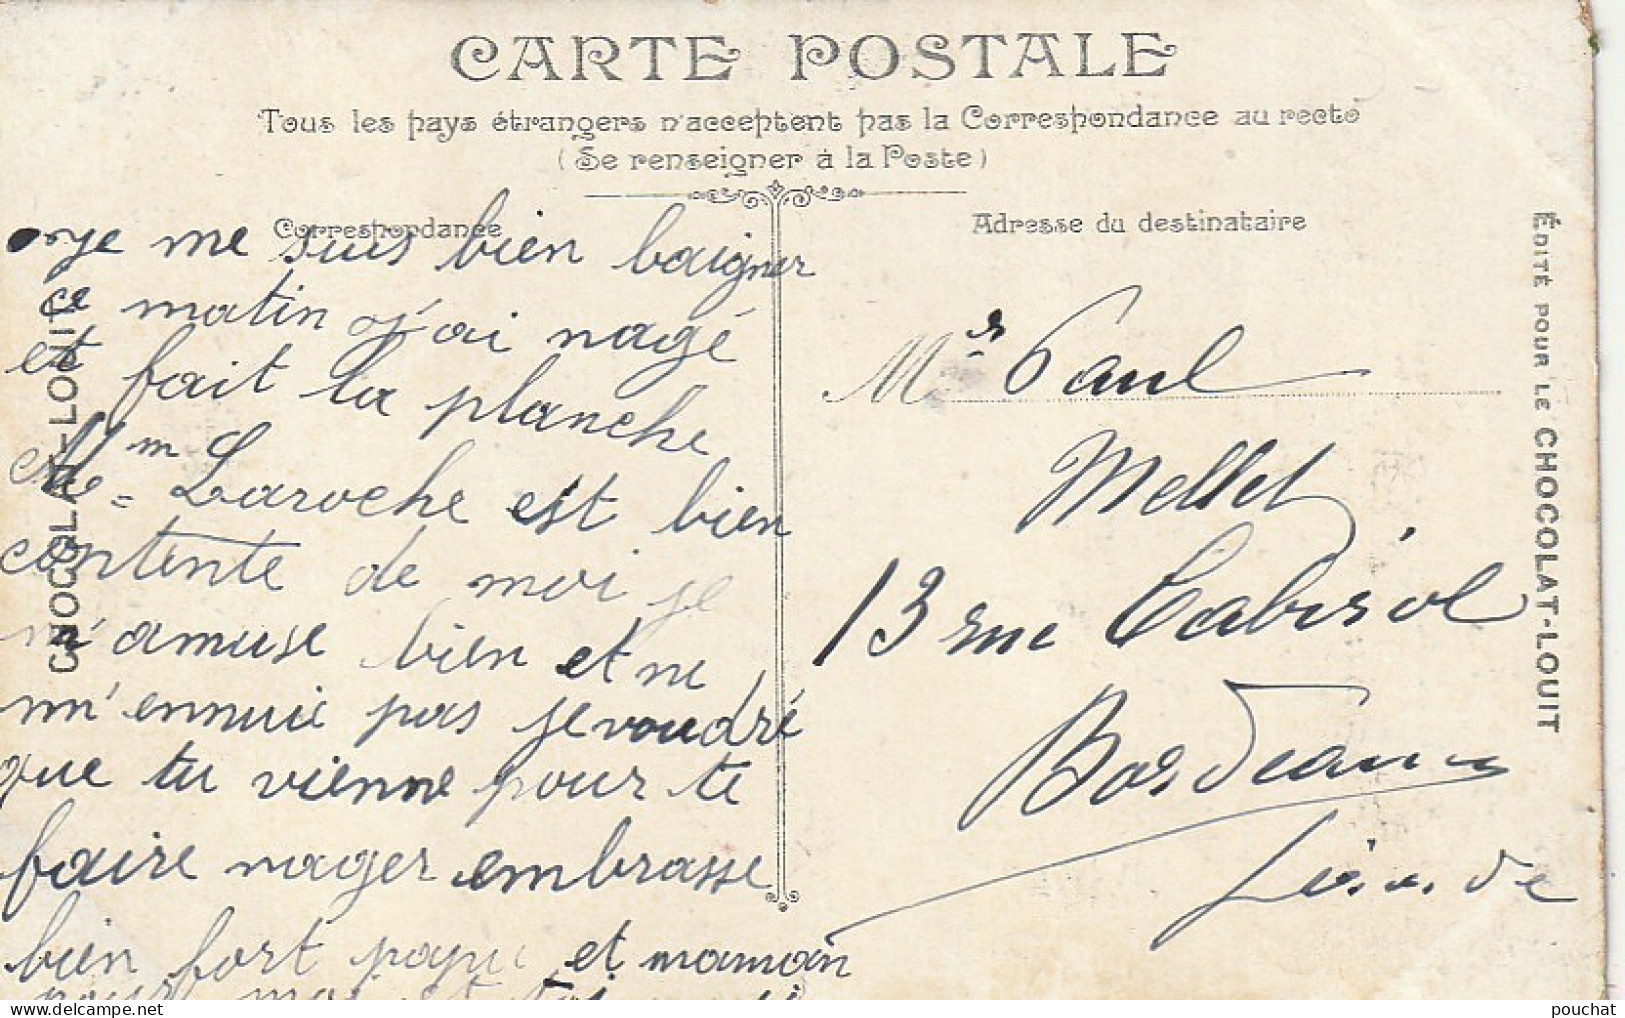 CARTE POSTALE
Tous les pays étrangers n'acceptent pas la Correspondance au recto
(Se renseigner à la Poste)
Correspondance
Adresse du destinataire
je me suis bien baigner
ce matin j'ai nagé
et fait la planche
Mme Laroche est bien
contente de moi je
m'amuse bien et ne
m'ennuie pas je voudré
que tu vienne pour te
faire nager embrasse
bien fort papa et maman
pour moi et toi
Mr Paul
Mellet
13 rue Cabirol
Bordeaux
Gironde
CHOCOLAT-LOUIT
ÉDITÉ POUR LE CHOCOLAT-LOUIT
pouchat